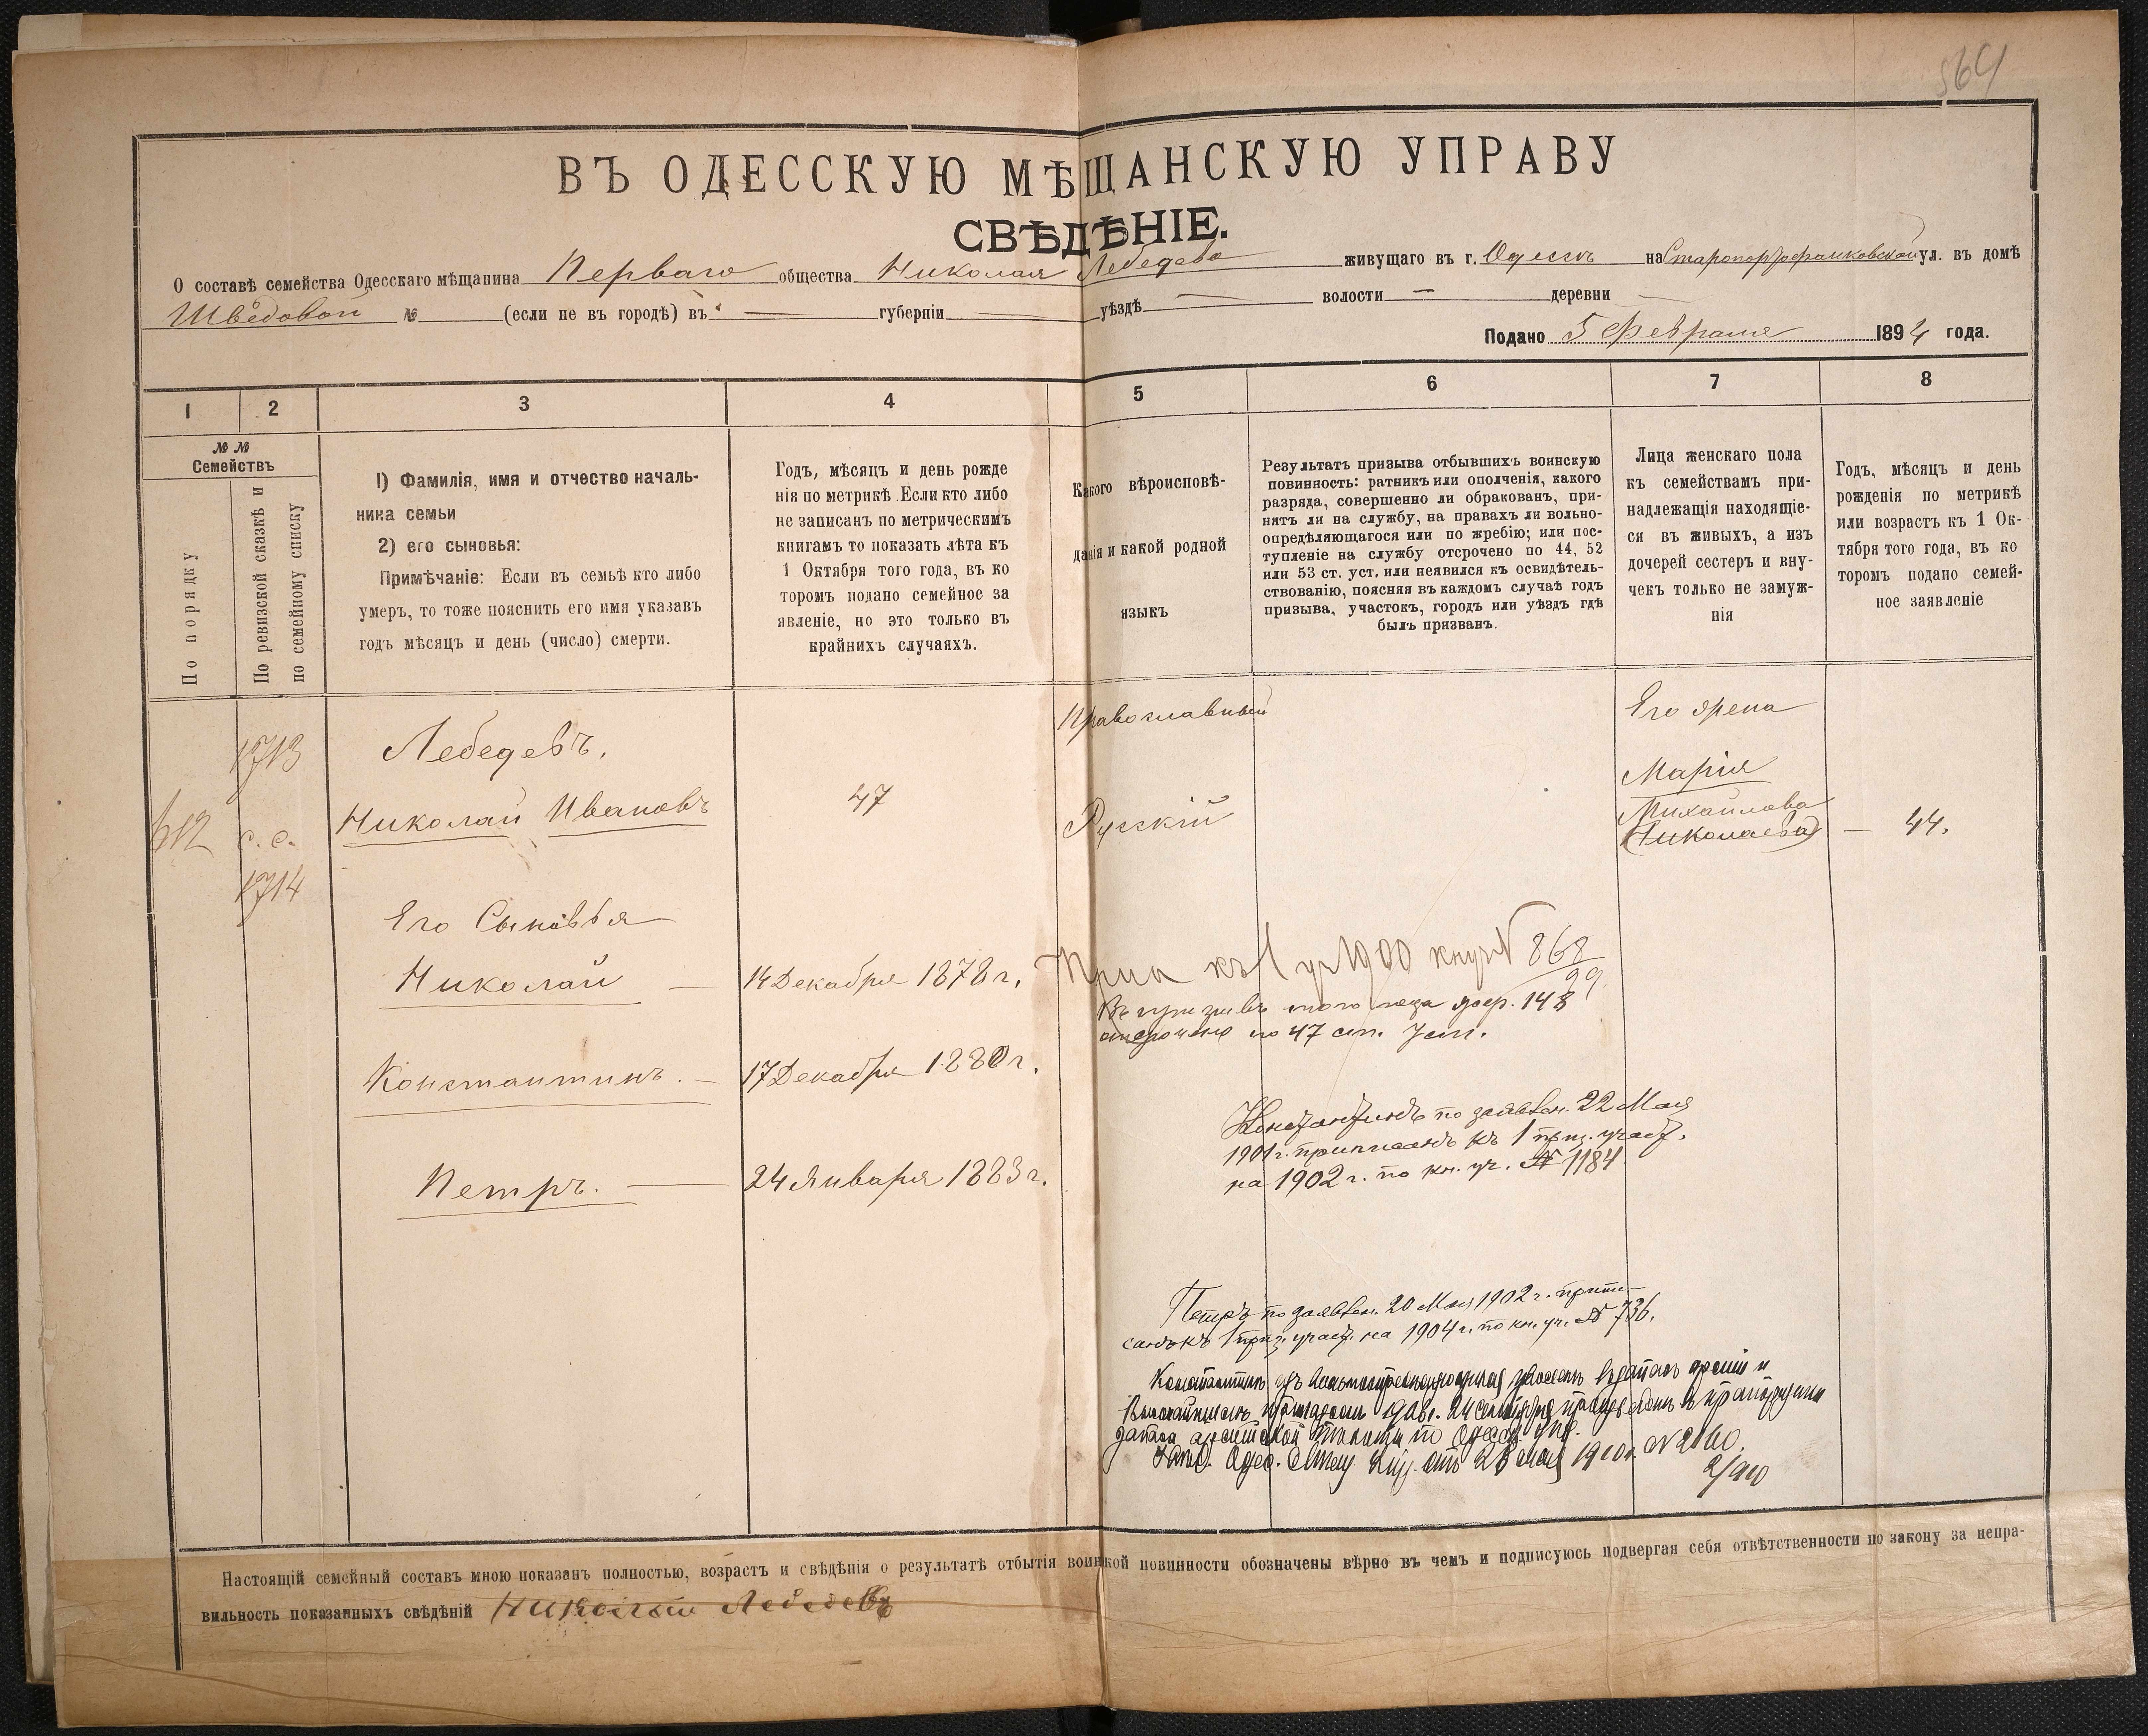 564
ВЪ ОДЕССКУЮ МѢЩАНСКУЮ УПРАВУ
СВѢДѢНІЕ.
О составѣ семейства Одесскаго мѣщанина Перваго общества Николая Лебедева живущаго въ г. Одессѣ на Старопортофранковской ул. въ домѣ
Шведовой № (если не въ городѣ) въ — губерніи — уѣздѣ — волости — деревни —
Подано 5 Февраля 1894 года.
1 2 3 4 5 6 7 8
№ № Семействъ
По порядку
По ревизской сказкѣ и
по семейному списку
1) Фамилія, имя и отчество началь-
ника семьи
2) его сыновья:
Примѣчаніе: Если въ семьѣ кто либо
умеръ, то тоже пояснить его имя указавъ
годъ мѣсяцъ и день (число) смерти.
Годъ, мѣсяцъ и день рожде
нія по метрикѣ. Если кто либо
не записанъ по метрическимъ
книгамъ то показать лѣта къ
1 Октября того года, въ ко
торомъ подано семейное за
явленіе, но это только въ
крайнихъ случаяхъ.
Какого вѣроисповѣ-
данія и какой родной
языкъ
Результатъ призыва отбывшихъ воинскую
повинность: ратникъ или ополченія, какого
разряда, совершенно ли обракованъ, при-
нятъ ли на службу, на правахъ ли вольно-
опредѣляющагося или по жребію; или пос-
тупленіе на службу отсрочено по 44, 52
или 53 ст. уст. или неявился къ освидѣтель-
ствованію, поясняя въ каждомъ случаѣ годъ
призыва, участокъ, городъ или уѣздъ гдѣ
былъ призванъ.
Лица женскаго пола
къ семействамъ при-
надлежащія находящіе-
ся въ живыхъ, а изъ
дочерей сестеръ и вну-
чекъ только не замуж-
нія
Годъ, мѣсяцъ и день
рожденія по метрикѣ
или возрастъ къ 1 Ок-
тября того года, въ ко
торомъ подано семей-
ное заявленіе
612
1713
с. с.
1714
Лебедевъ.
Николай Ивановъ
47
Православный
Русскій
Его жена
Марія
Михайлова
(Николаева) — 44.
Его Сыновья
Николай — 14 Декабря 1878 г.
къ 1 уч 1900 кн уч № 868
99
Въ призывъ того года жер. 148
отсрочено по 47 ст. Уст.
Константинъ. — 17 Декабря 1880 г.
Константинъ по заявлен. 22 Мая
1901 г. приписанъ къ 1 приз. участ.
на 1902 г. по кн. уч. № 1184
Петръ. — 24 Января 1883 г.
Петръ по заявлен. 20 Мая 1902 г. припи-
санъ къ 1 приз. участ. на 1904 г. по кн. уч. № 736.
Константинъ изъ
Высочайшимъ приказомъ 24 сентября произведенъ въ прапорщики
запаса армейской пѣхоты по Одесск.
Одес. отъ 28 мая 1910 г. № 2160.
2/910
Настоящій семейный составъ мною показанъ полностью, возрастъ и свѣдѣнія о результатѣ отбытія воинской повинности обозначены вѣрно въ чемъ и подписуюсь подвергая себя отвѣтственности по закону за непра-
вильность показанныхъ свѣдѣній Николай Лебедевъ